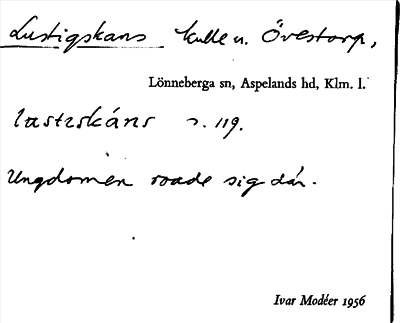 Lustigskans kulle u. Övestorp,
Lönneberga sn, Aspelands hd, Klm. l.
lastɩskáns s. 119.
Ungdomen roade sig där.
Ivar Modéer 1956